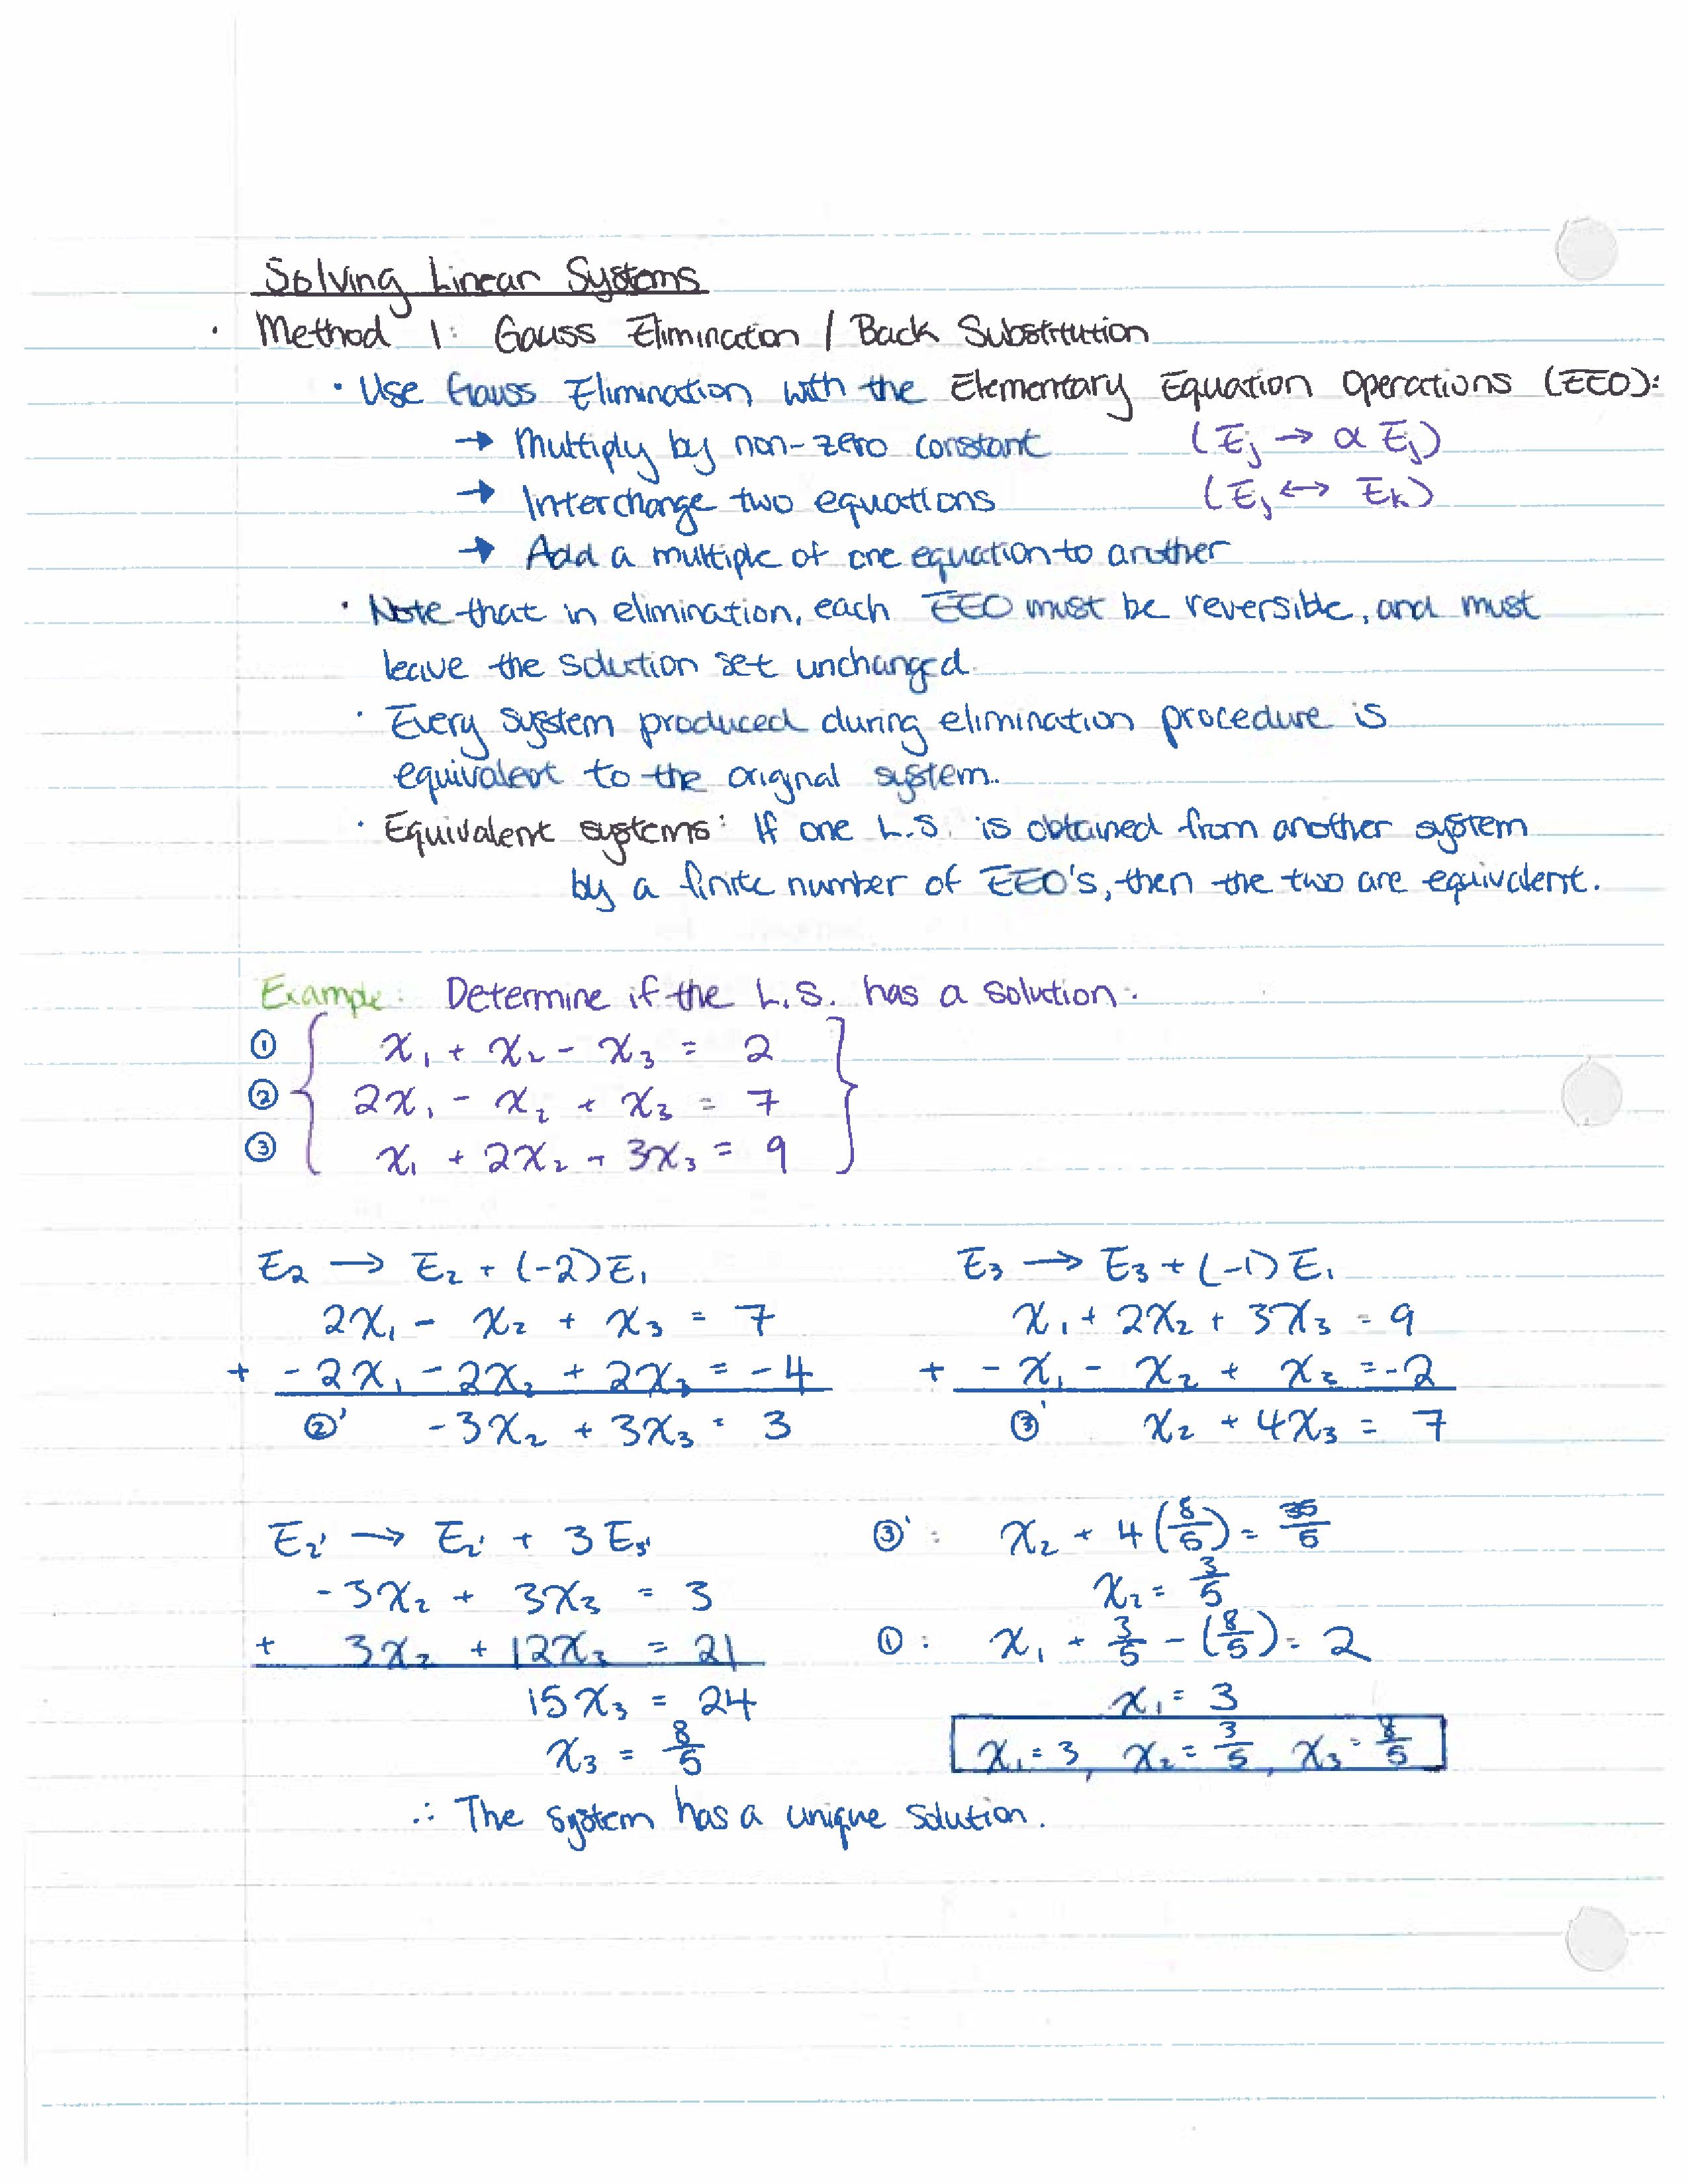 Solving Linear Systems
· Method 1: Gauss Elimination / Back Substitution
· Use Gauss Elimination with the Elementary Equation Operations (EEO):
→ Multiply by non-zero constant (Ej → α Ej)
→ Interchange two equations (Ej ↔ Ek)
→ Add a multiple of one equation to another
· Note that in elimination, each EEO must be reversible, and must
leave the solution set unchanged.
· Every system produced during elimination procedure is
equivalent to the original system.
· Equivalent systems: If one L.S. is obtained from another system
by a finite number of EEO's, then the two are equivalent.
Example: Determine if the L.S. has a solution.
① x₁ + x₂ - x₃ = 2
② 2x₁ - x₂ + x₃ = 7
③ x₁ + 2x₂ + 3x₃ = 9
E₂ → E₂ + (-2)E₁
2x₁ - x₂ + x₃ = 7
+ -2x₁ - 2x₂ + 2x₃ = -4
②' -3x₂ + 3x₃ = 3
E₃ → E₃ + (-1)E₁
x₁ + 2x₂ + 3x₃ = 9
+ -x₁ - x₂ + x₂ = -2
③' x₂ + 4x₃ = 7
E₂' → E₂' + 3E₃'
-3x₂ + 3x₃ = 3
+ 3x₂ + 12x₃ = 21
15x₃ = 24
x₃ = 8/5
③': x₂ + 4(8/5) = 35/5
x₂ = 3/5
①: x₁ + 3/5 - (8/5) = 2
x₁ = 3
x₁ = 3, x₂ = 3/5, x₃ = 8/5
∴ The system has a unique solution.